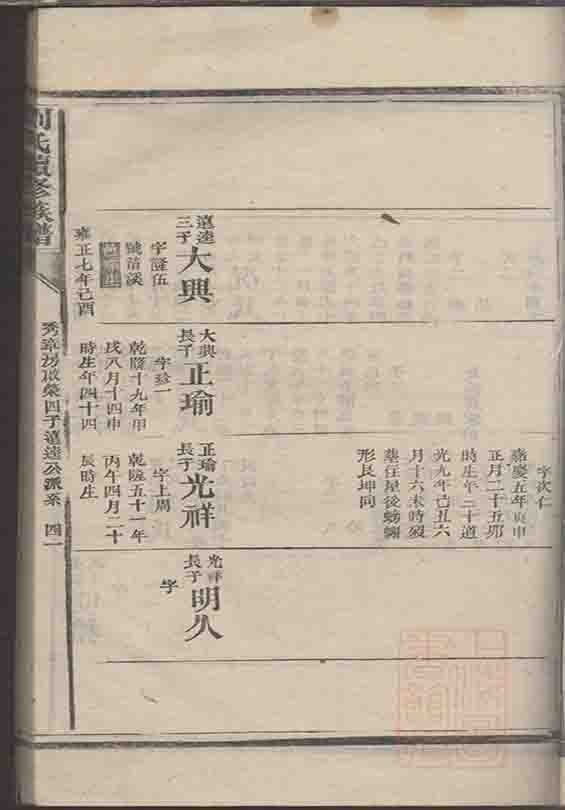 字次仁
嘉慶五年庚申
正月二十五卯
時生年三十道
光九年己丑六
月十六未時歿
葬任屋後螃蠏
形艮坤向
遠逵三子
大興
字隆伍
號清溪
雍正七年己酉
大興長子
正瑜
字珍一
乾隆十九年甲
戌八月十四申
時生年四十四
正瑜長子
光祥
字上周
乾隆五十一年
丙午四月二十
辰時生
光祥長子
明久
字
劉氏續修族譜
秀章房啟榮四子遠逵公派系 四一